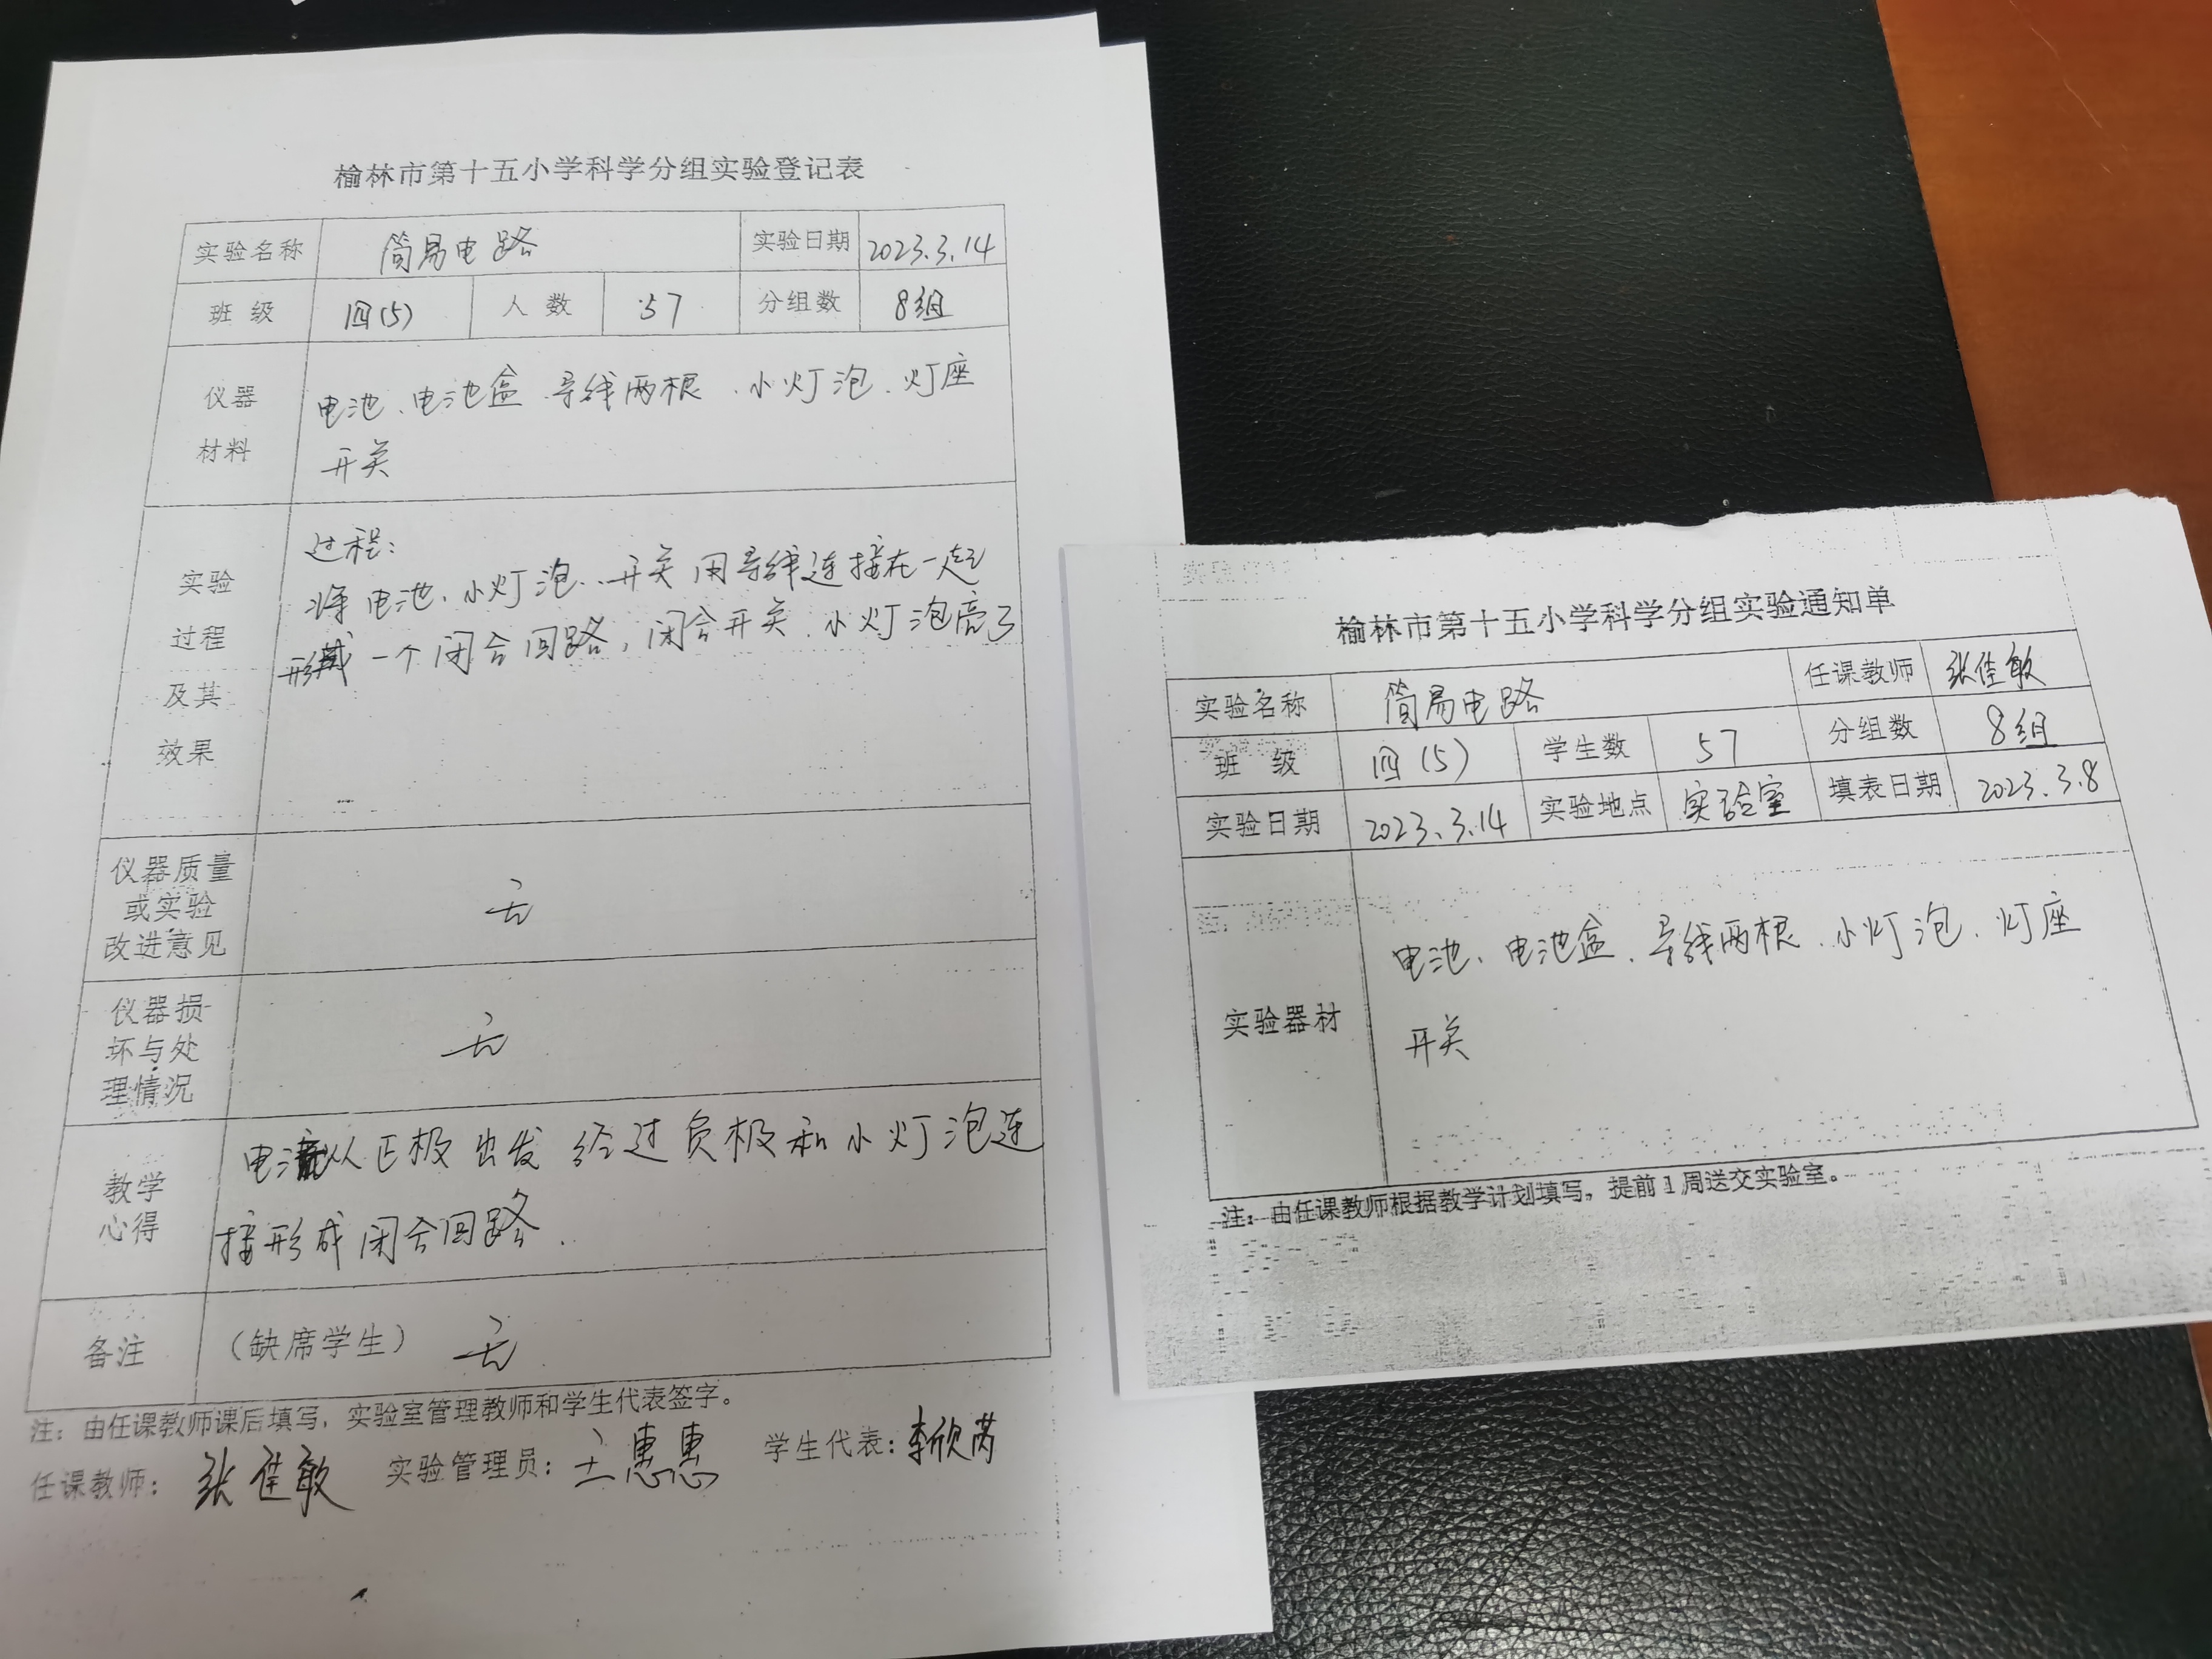 榆林市第十五小学科学分组实验登记表
实验名称 简易电路 实验日期 2023.3.14
班 级 四(5) 人 数 57 分组数 8组
仪器
材料
电池、电池盒、导线两根、小灯泡、灯座
开关
实验
过程
及其
效果
过程:
将电池、小灯泡、开关用导线连接在一起
形成一个闭合回路,闭合开关,小灯泡亮了
仪器质量
或实验
改进意见
无
仪器损
坏与处
理情况
无
教学
心得
电流从正极出发 经过负极和小灯泡连
接形成闭合回路.
备注 (缺席学生) 无
注:由任课教师课后填写,实验室管理教师和学生代表签字。
任课教师: 张佳敏 实验管理员: 王惠惠 学生代表: 李欣芮
榆林市第十五小学科学分组实验通知单
实验名称 简易电路 任课教师 张佳敏
班 级 四(5) 学生数 57 分组数 8组
实验日期 2023.3.14 实验地点 实验室 填表日期 2023.3.8
实验器材
电池、电池盒、导线两根、小灯泡、灯座
开关
注:由任课教师根据教学计划填写,提前1周送交实验室。